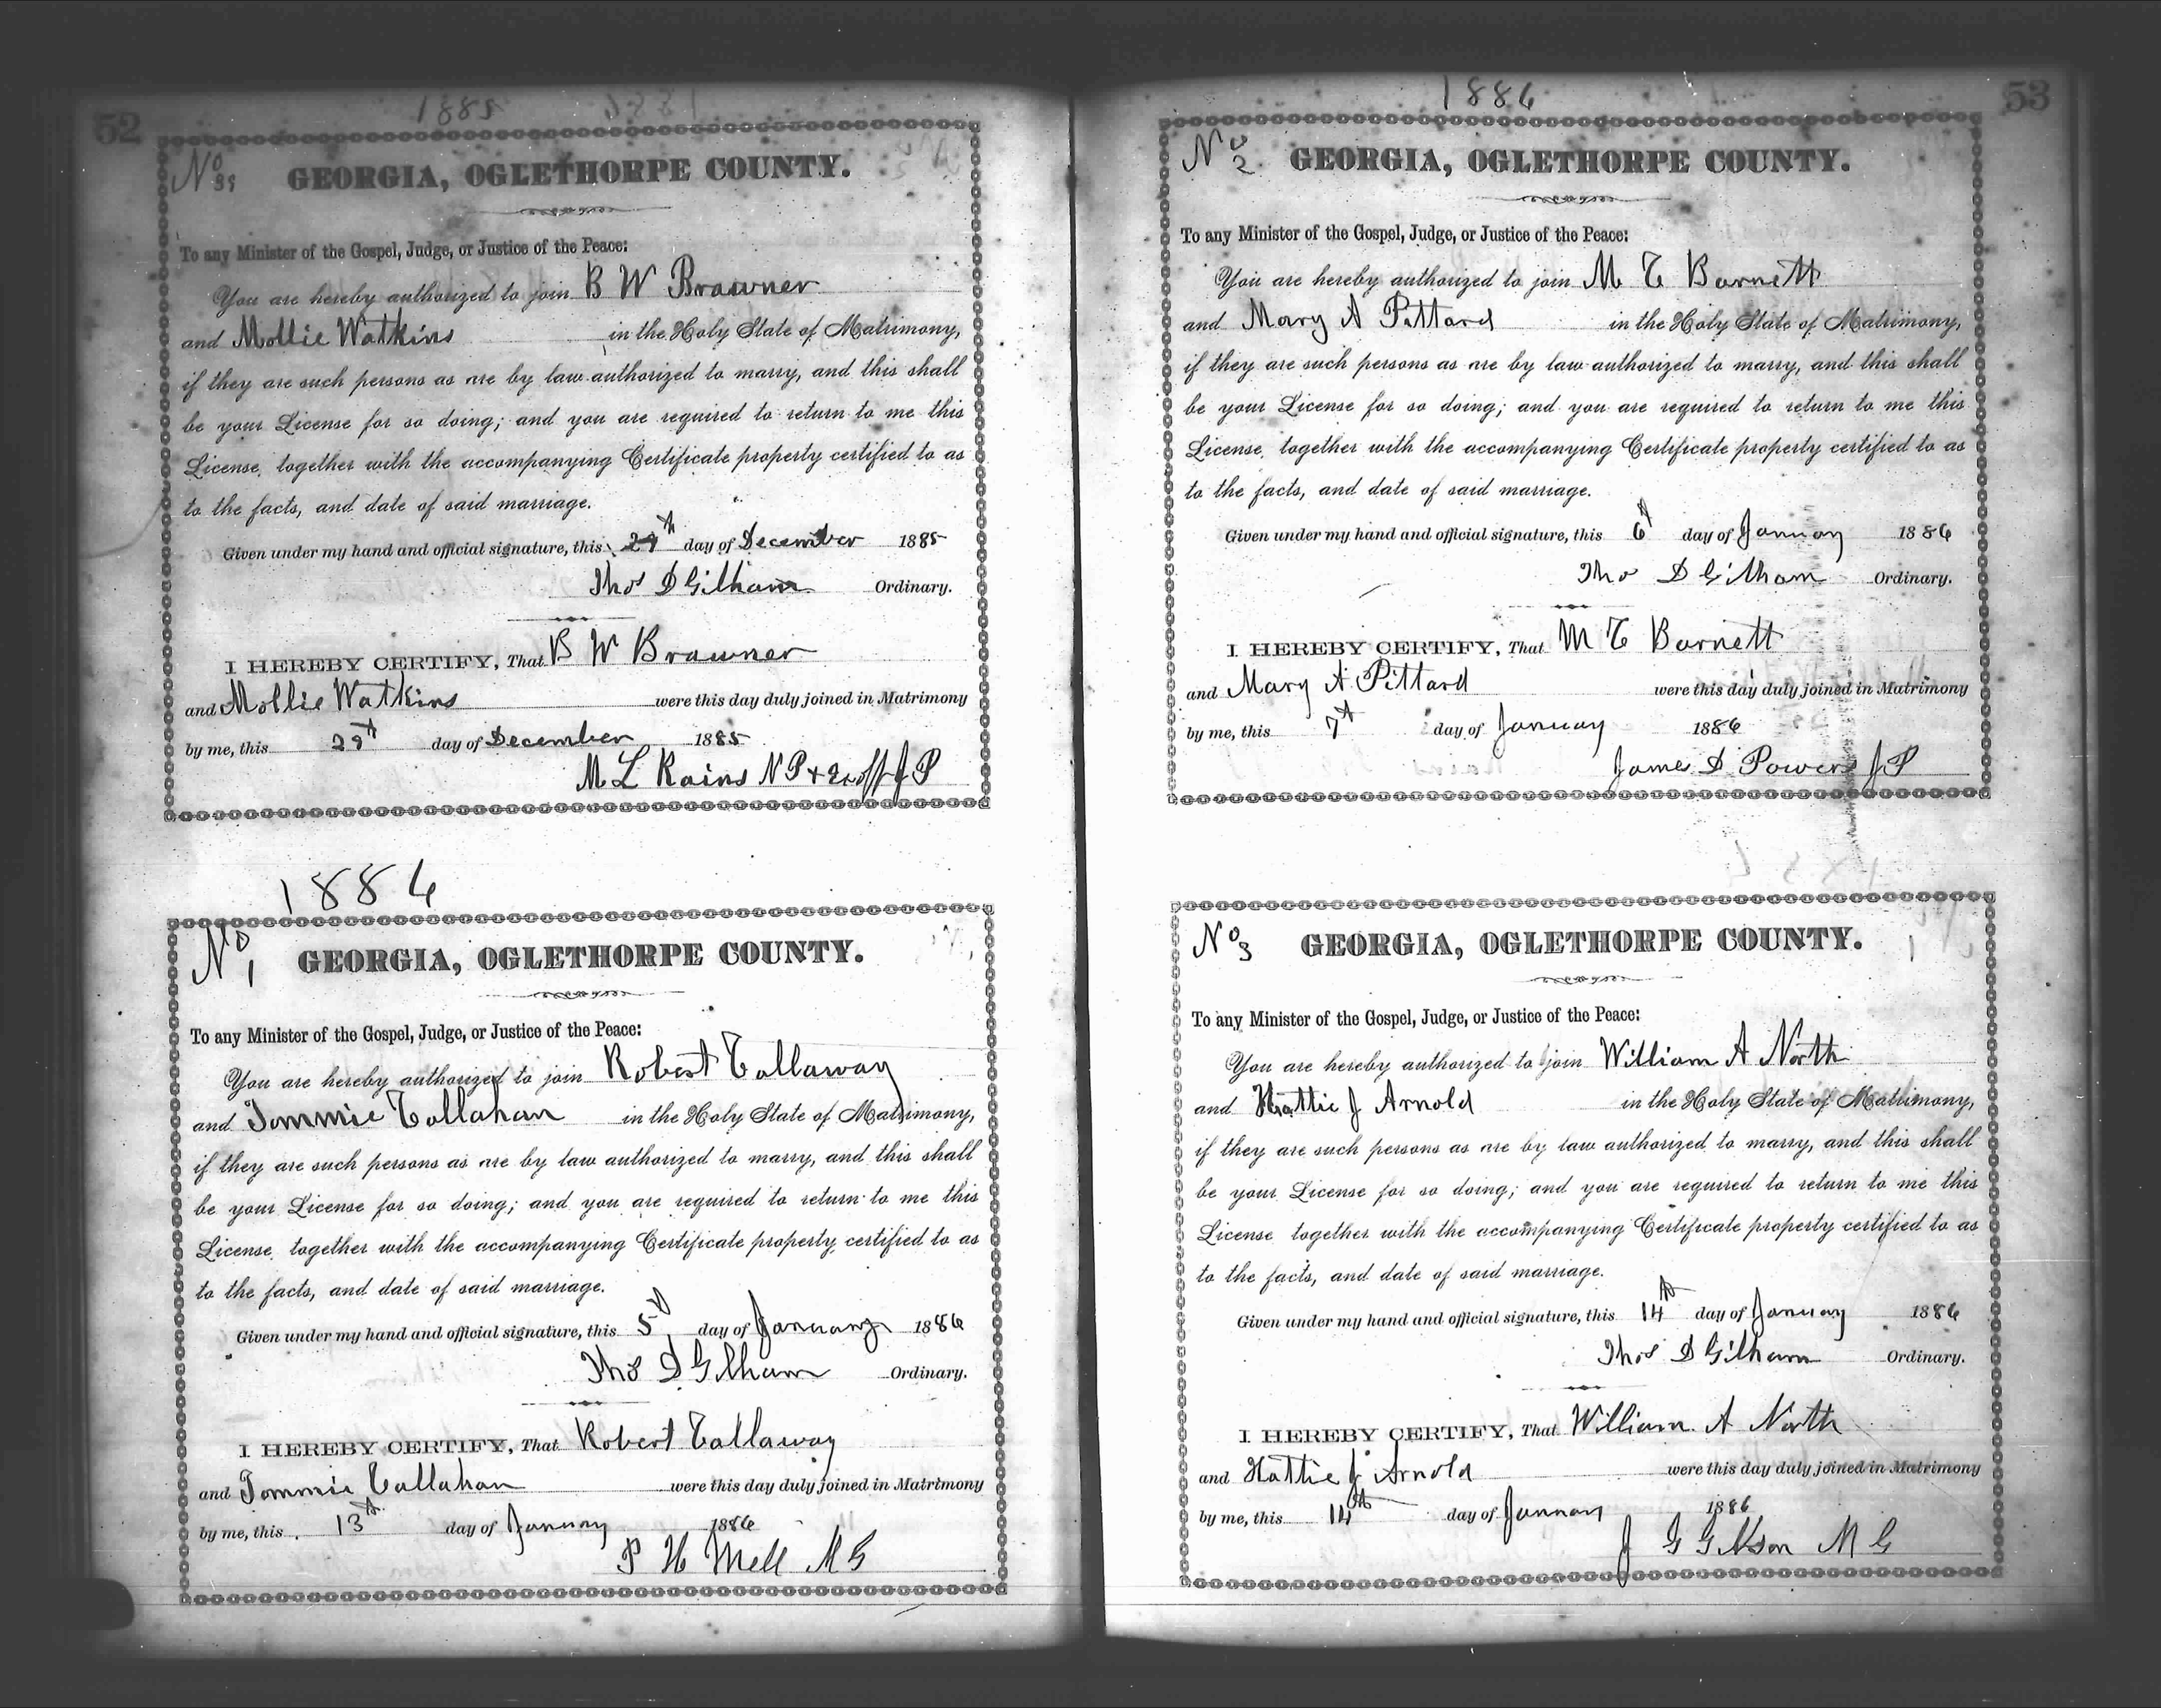 52
1885
No 99
GEORGIA, OGLETHORPE COUNTY.
To any Minister of the Gospel, Judge, or Justice of the Peace:
You are hereby authorized to join B W Brawner
and Mollie Watkins in the Holy State of Matrimony,
if they are such persons as are by law authorized to marry, and this shall
be your License for so doing; and you are required to return to me this
License, together with the accompanying Certificate property certified to as
to the facts, and date of said marriage.
Given under my hand and official signature, this 29th day of December 1885
Thos D Gilham Ordinary.
I HEREBY CERTIFY, That B W Brawner
and Mollie Watkins were this day duly joined in Matrimony
by me, this 29th day of December 1885
M L Rains N P & Exoff J P
1886
No 1
GEORGIA, OGLETHORPE COUNTY.
To any Minister of the Gospel, Judge, or Justice of the Peace:
You are hereby authorized to join Robert Callaway
and Tommie Callahan in the Holy State of Matrimony,
if they are such persons as are by law authorized to marry, and this shall
be your License for so doing; and you are required to return to me this
License, together with the accompanying Certificate property certified to as
to the facts, and date of said marriage.
Given under my hand and official signature, this 5th day of January 1886
Thos D Gilham Ordinary.
I HEREBY CERTIFY, That Robert Callaway
and Tommie Callahan were this day duly joined in Matrimony
by me, this 13th day of January 1886
P H Mell M G
53
1886
No 2
GEORGIA, OGLETHORPE COUNTY.
To any Minister of the Gospel, Judge, or Justice of the Peace:
You are hereby authorized to join M C Barnett
and Mary A Pittard in the Holy State of Matrimony,
if they are such persons as are by law authorized to marry, and this shall
be your License for so doing; and you are required to return to me this
License, together with the accompanying Certificate property certified to as
to the facts, and date of said marriage.
Given under my hand and official signature, this 6th day of January 1886
Tho D Gilham Ordinary.
I HEREBY CERTIFY, That M C Barnett
and Mary A Pittard were this day duly joined in Matrimony
by me, this 7th day of January 1886
James D Powers J P
No 3
GEORGIA, OGLETHORPE COUNTY.
To any Minister of the Gospel, Judge, or Justice of the Peace:
You are hereby authorized to join William A North
and Hattie J Arnold in the Holy State of Matrimony,
if they are such persons as are by law authorized to marry, and this shall
be your License for so doing; and you are required to return to me this
License together with the accompanying Certificate property certified to as
to the facts, and date of said marriage.
Given under my hand and official signature, this 14th day of January 1886
Thos D Gilham Ordinary.
I HEREBY CERTIFY, That William A North
and Hattie J Arnold were this day duly joined in Matrimony
by me, this 14th day of January 1886
J G Gibson M G